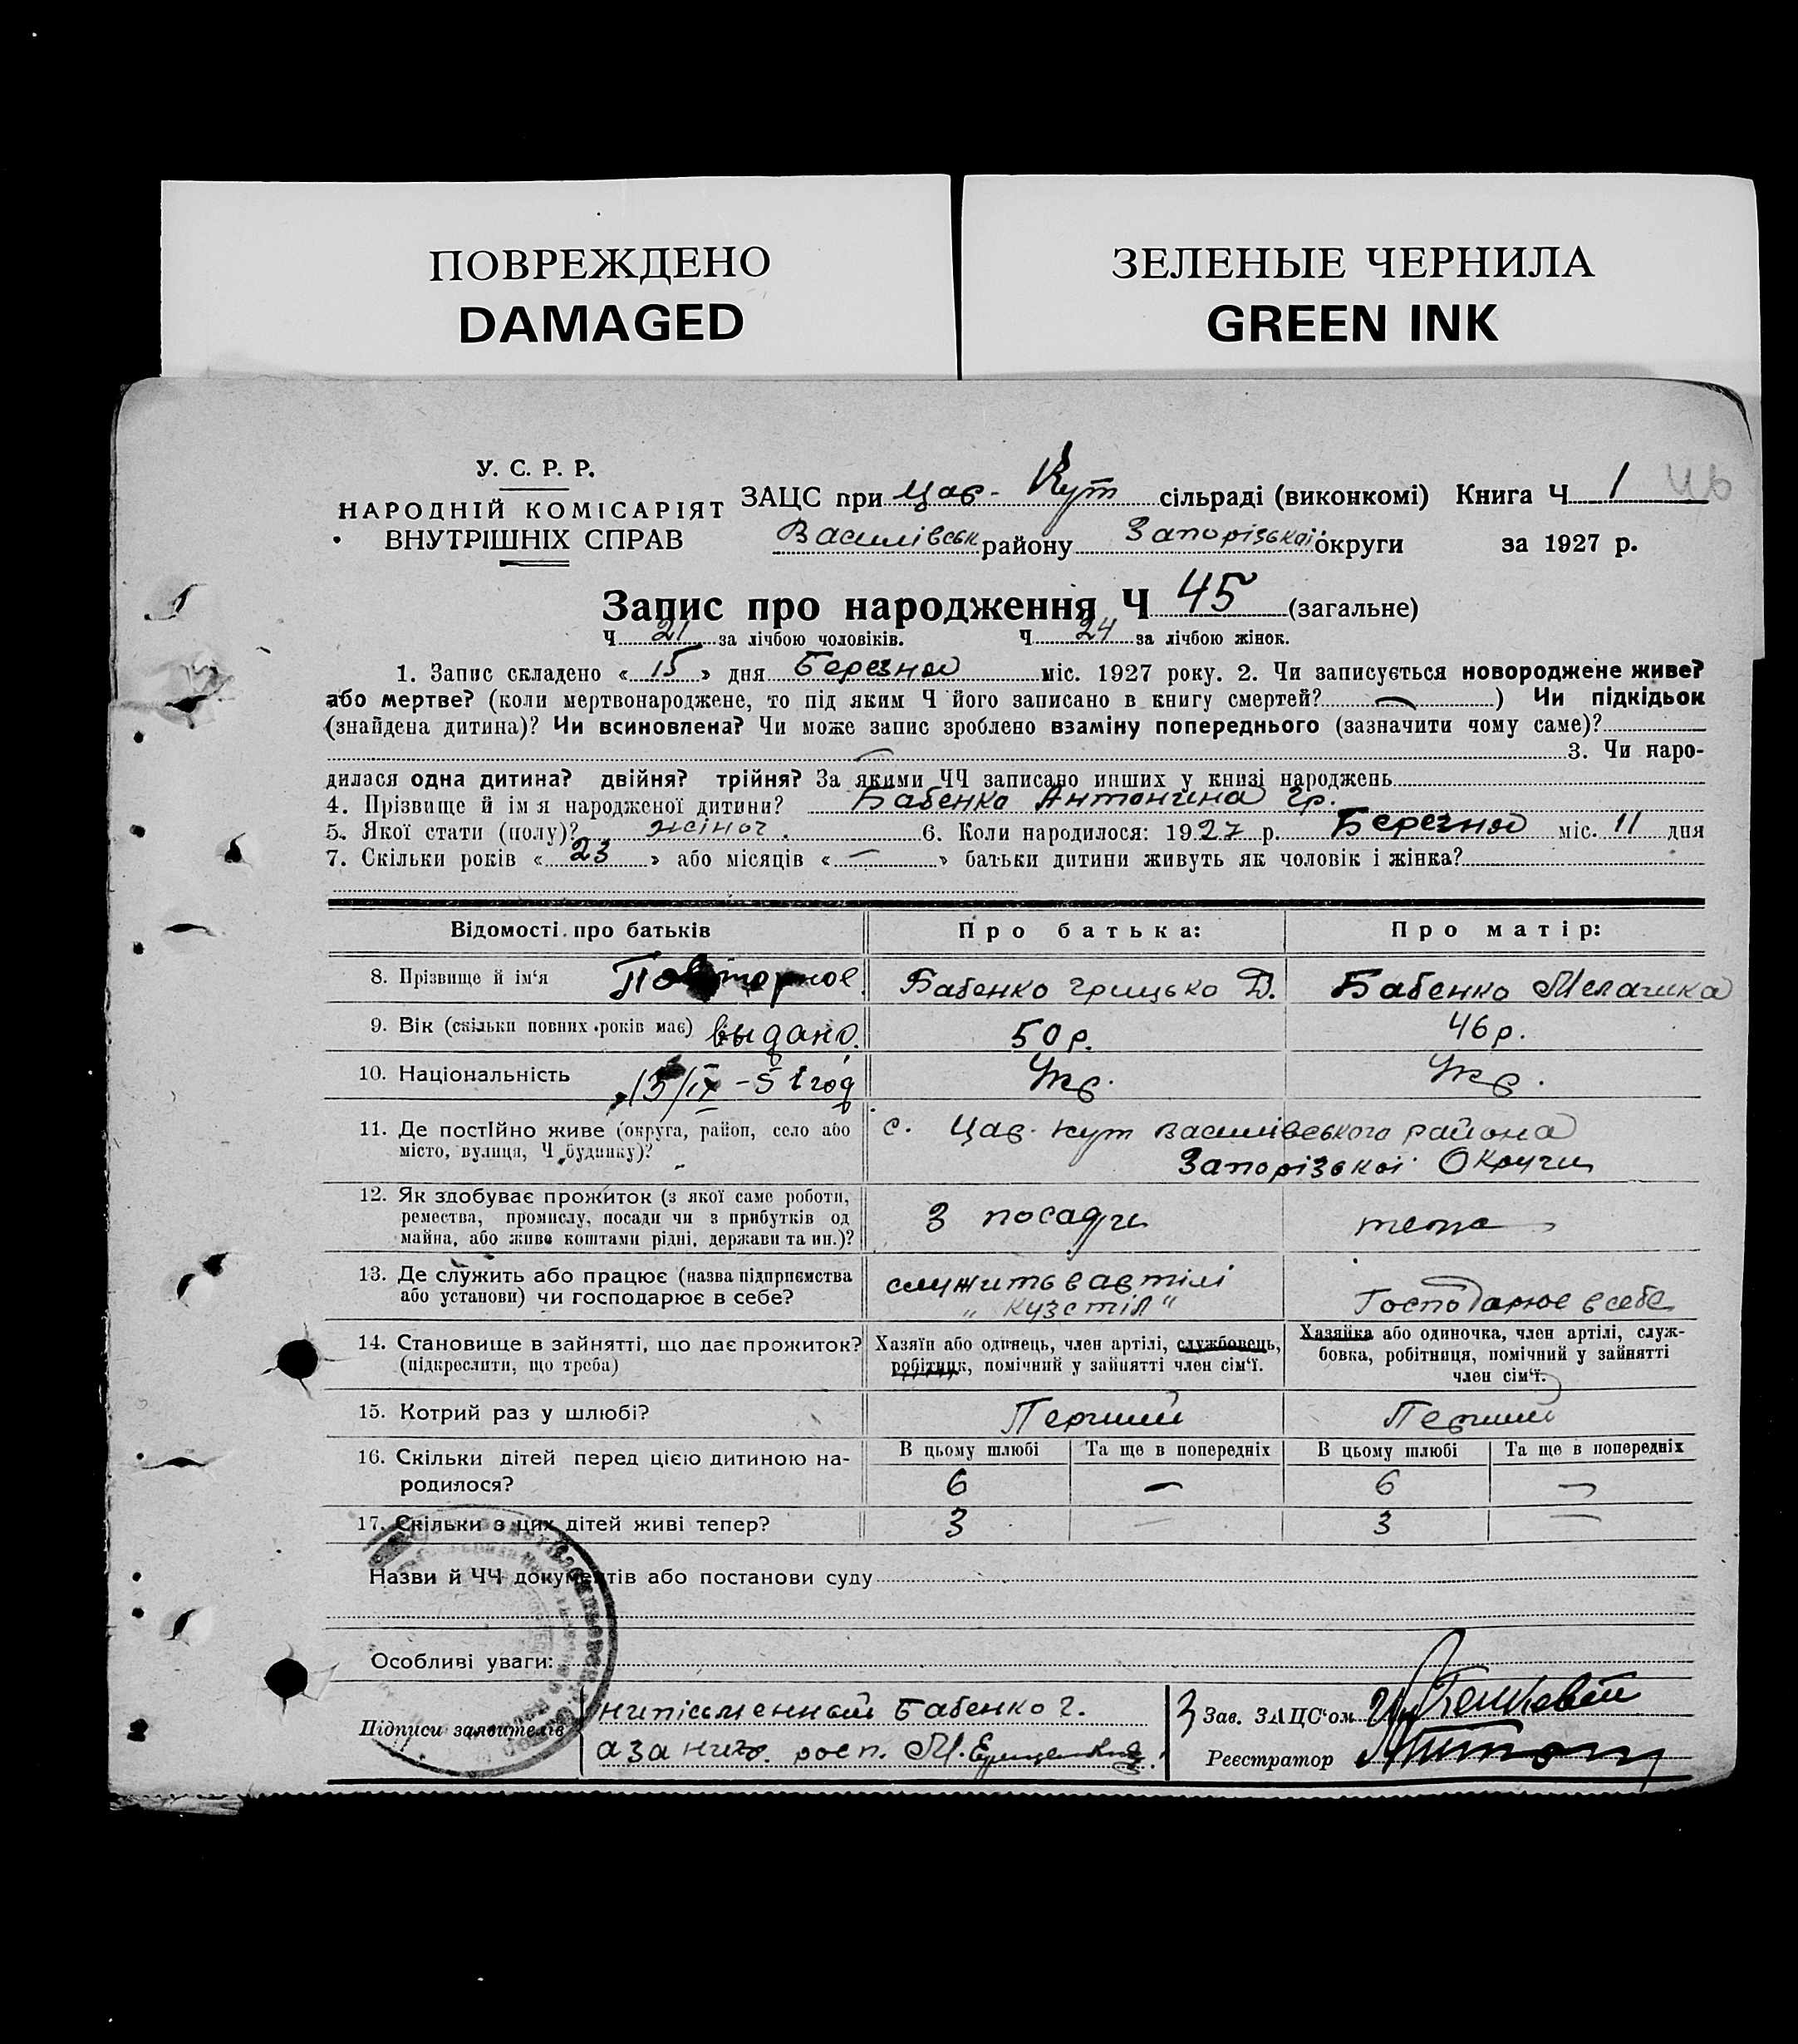 ПОВРЕЖДЕНО
DAMAGED
ЗЕЛЕНЫЕ ЧЕРНИЛА
GREEN INK
У. С. Р. Р.
НАРОДНІЙ КОМІСАРІЯТ
ВНУТРІШНІХ СПРАВ
ЗАЦС при Цар- Кут сільраді (виконкомі) Книга Ч 1 46
Василівськ району Запорізькоі округи за 1927 р.
Запис про народження Ч 45 (загальне)
Ч 21 за лічбою чоловіків. Ч 24 за лічбою жінок.
1. Запис складено « 15 » дня Березная міс. 1927 року. 2. Чи записується новороджене живе?
або мертве? (коли мертвонароджене, то під яким Ч його записано в книгу смертей? — ) Чи підкідьок
(знайдена дитина)? Чи всиновлена? Чи може запис зроблено взаміну попереднього (зазначити чому саме)?
— 3. Чи наро-
дилася одна дитина? двійня? трійня? За якими ЧЧ записано инших у книзі народжень
4. Прізвище й ім я народженої дитини? Бабенко Антонина Гр.
5. Якої стати (полу)? жіноч. 6. Коли народилося: 1927 р. Березная міс. 11 дня
7. Скільки років « 23 » або місяців « — » батьки дитини живуть як чоловік і жінка?
Відомості про батьків Про батька: Про матір:
8. Прізвище й ім‘я Повторное Бабенко Грицько Д. Бабенко Мелашка
9. Вік (скільки повних років має) выдано. 50 р. 46 р.
10. Національність 15/IX - 51 год Укр. Укр.
11. Де постійно живе (округа, район, село або
місто, вулиця, Ч будинку)?
с. Цар. Кут Василівського района
Запорізькоі Округи
12. Як здобуває прожиток (з якої саме роботи,
ремества, промислу, посади чи з прибутків од
майна, або живе коштами рідні, держави та ин.)?
З посади теж
13. Де служить або працює (назва підприємства
або установи) чи господарює в себе?
служить в артілі
Господарює в себе
14. Становище в зайнятті, що дає прожиток?
(підкреслити, що треба)
Хазяїн або одинець, член артілі, службовець,
робітник, помічний у зайнятті член сім‘ї.
Хазяйка або одиночка, член артілі, служ-
бовка, робітниця, помічний у зайнятті
член сім‘ї.
15. Котрий раз у шлюбі? Перший Перший
16. Скільки дітей перед цією дитиною на-
родилося?
В цьому шлюбі Та ще в попередніх В цьому шлюбі Та ще в попередніх
6 — 6 —
17. Скільки з цих дітей живі тепер? 3 — 3 —
Назви й ЧЧ документів або постанови суду
Особливі уваги:
Підписи заявителів
нипісьменный Бабенко Г.
а за него росп. М.
З Зав. ЗАЦС‘ом
Реєстратор